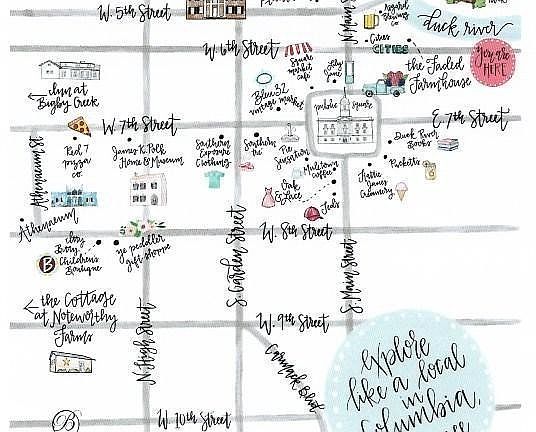 W. 5th Street
N. Main S
Asgard
Brewing
Co.
duck river
Cities
CITIES
W. 6th Street
Square
market
cafe
Lily
Jane
the Faded
Farmhouse
You are
HERE
Inn at
Bigby Creek
Blue 32
vintage market
public square
E. 7th Street
W 7th Street
Athenaeum St
Red 7
pizza
co.
James K. Polk
Home & Museum
Southern
Exposure
Clothing
Southern
Tré
Pie
Sensation
Duck River
Books
Muletown
coffee
Puckett's
Hattie
Jane's
Creamery
Oak
& Lace
Ted's
Athenaeum
Itsy
Bitsy
Children's
Boutique
B
ye peddler
gift shoppe
W. 8th Street
S. Garden Street
S. Main Street
the Cottage
at Noteworthy
Farms
N High Street
W. 9th Street
Carmack Blvd
explore
like a local
in
Columbia,
B
W. 10th Street